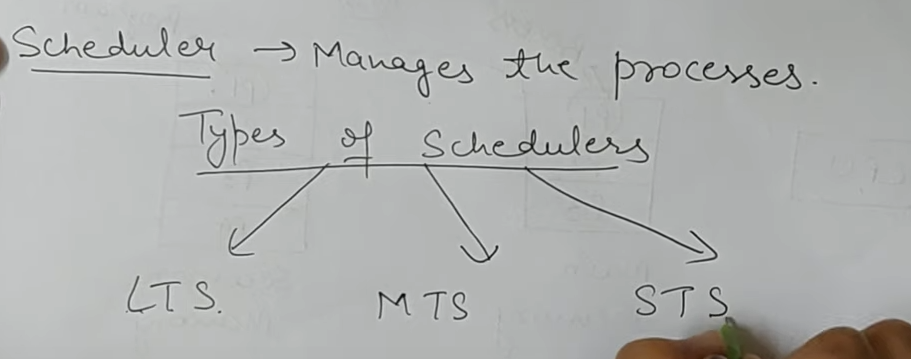 Scheduler → Manages the processes.
Types of Schedulers
LTS. MTS STS